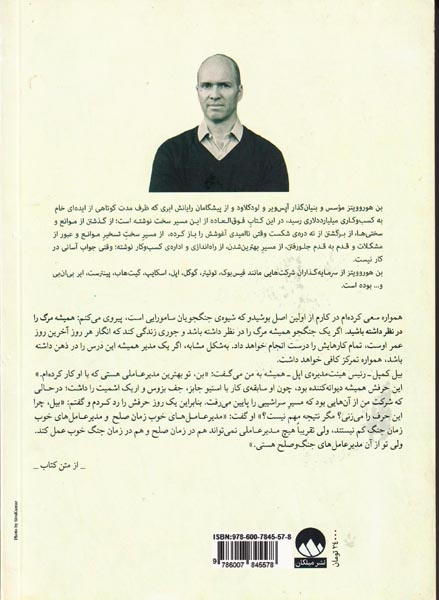 بن هوروویتز مؤسس و بنیان‌گذار آپس‌ویر و لودکلاود و از پیشگامان رایانش ابری که ظرف مدت کوتاهی از ایده‌ای خام
به کسب‌وکاری میلیارددلاری رسید، در این کتاب فوق‌العاده از این مسیر سخت نوشته است؛ از گذشتن از موانع و
سختی‌ها، از برگشتن از ته دره‌ی شکست وقتی ناامیدی آغوشش را باز کرده، از مسیر سخت تسخیر موانع و عبور از
مشکلات و قدم به قدم جلورفتن، از مسیر بهترین‌شدن، از راه‌اندازی و اداره‌ی کسب‌وکار نوشته؛ وقتی جواب آسانی در
کار نیست.
بن هوروویتز از سرمایه‌گذاران شرکت‌هایی مانند فیس‌بوک، توئیتر، گوگل، اپل، اسکایپ، گیت‌هاب، پینترست، ایر بی‌ان‌بی
و... بوده است.
همواره سعی کرده‌ام در کارم از اولین اصل بوشیدو که شیوه‌ی جنگجویان سامورایی است، پیروی می‌کنم: همیشه مرگ را
در نظر داشته باشید. اگر یک جنگجو همیشه مرگ را در نظر داشته باشد و جوری زندگی کند که انگار هر روز آخرین روز
عمر اوست، تمام کارهایش را درست انجام خواهد داد. به‌شکل مشابه، اگر یک مدیر همیشه این درس را در ذهن داشته
باشد، همواره تمرکز کافی خواهد داشت.
بیل کمپل ـ رئیس هیئت‌مدیره‌ی اپل ـ همیشه به من می‌گفت: «بن، تو بهترین مدیرعاملی هستی که با او کار کرده‌ام.»
این حرفش همیشه دیوانه‌کننده بود، چون او سابقه‌ی کار با استیو جابز، جف بزوس و اریک اشمیت را داشت؛ در حالی
که شرکت من از آن‌هایی بود که مسیر سراشیبی را پایین می‌رفت. بنابراین یک روز حرفش را رد کردم و گفتم: «بیل، چرا
این حرف را می‌زنی؟ مگر نتیجه مهم نیست؟» او گفت: «مدیرعامل‌های خوب زمان صلح و مدیرعامل‌های خوب
زمان جنگ کم نیستند، ولی تقریباً هیچ مدیرعاملی نمی‌تواند هم در زمان صلح و هم در زمان جنگ خوب عمل کند.
ولی تو از آن مدیرعامل‌های جنگ‌وصلح هستی.»
_ از متن کتاب _
ISBN:978-600-7845-57-8
9 786007 845578
نشر میلکان
۲۴۰۰۰ تومان